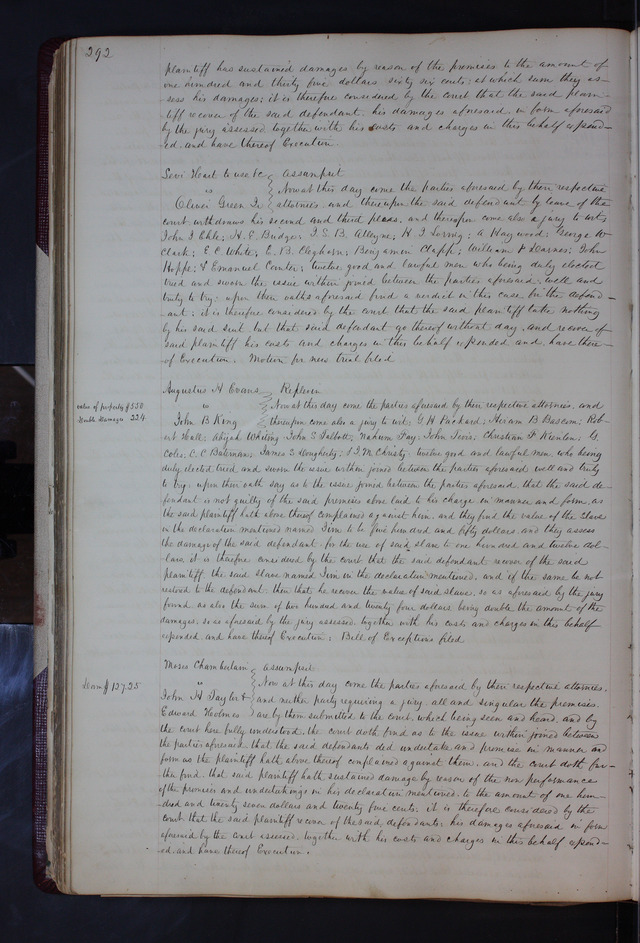 292
plaintiff has sustained damages by reason of the premises to the amount of
one hundred and thirty five dollars sixty six cents; at which sum they as-
sess his damages; it is therefore considered by the court that the said plain-
tiff recover of the said defendant his damages aforesaid in form aforesaid
by the jury assessed together with his costs and charges in this behalf expend-
ed and have thereof Execution.
Levi Hart to use &c } Assumpsit
vs } Now at this day come the parties aforesaid by their respective
Oliver Green Jr } attornies and thereupon the said defendant by leave of the
court withdraws his second and third pleas. and thereupon come also a jury to wit;
John J Ehle; H. E. Bridge; T. S. B. Alleyne; H. T. ; A Haywood; George W
Clark; E. C. White; E. B. Cleghorn; Benjamin Clapp; William F ; John
Hoppe; & Emanuel ; twelve good and lawful men who being duly elected
tried and sworn the issue within joined between the parties aforesaid well and
truly to try; upon their oaths aforesaid find a verdict in this case for the defend-
ant; it is therefore considered by the court that the said plaintiff take nothing
by his said suit but that said defendant go thereof without day and recover of
said plaintiff his costs and charges in this behalf expended and have there-
of Execution. Motion for new trial filed
Augustus H Evans } Replevin
value of property $550
Double Damages 224
vs } Now at this day come the parties aforesaid by their respective attornies. and
John B King } thereupon come also a jury to wit; G H Packard; Hiram B Bascom; Rob-
ert Hall; Abijah Whiting John S Talbott; Nahum Fay; John ; Christian F ; G.
Coles; C. C Bateman; James S Dougherty; & T. M. Christy; twelve good and lawful men who being
duly elected tried and sworn the issue within joined between the parties aforesaid well and truly
to try; upon their oath say as to the issue joined between the parties aforesaid, that the said de-
fendant is not guilty of the said premises above laid to his charge in manner and form, as
the said plaintiff hath above thereof complained against him. and they find the value of the slave
in the declaration mentioned named Jim to be five hundred and fifty dollars and they assess
the damage of the said defendant for the use of said slave to one hundred and twelve dol-
lars. it is therefore considered by the court that the said defendant recover of the said
plaintiff the said slave named Jim in the declaration mentioned. and if the same be not
restored to the defendant then that he recover the value of said slave. so as aforesaid by the jury
found. as also the sum of two hundred and twenty four dollars being double the amount of the
damages. so as aforesaid by the jury assessed together with his costs and charges in this behalf
expended. and have thereof Execution; Bill of Exceptions filed
Moses Chamberlain } Assumpsit
Dam $127.25
vs } Now at this day come the parties aforesaid by their respective attornies.
John H Taylor & } and neither party requiring a jury. all and singular the premises.
Edward Holmes } are by them submitted to the court. which being seen and heard. and by
the court here fully understood. the court doth find as to the issue within joined between
the parties aforesaid that the said defendants did undertake and promise in manner and
form as the plaintiff hath above thereof complained against them. and the court doth fur-
ther find. that said plaintiff hath sustained damage by reason of the non performance
of the promises and undertakings in his declaration mentioned to the amount of one hun-
dred and twenty seven dollars and twenty five cents: it is therefore considered by the
court that the said plaintiff recover of the said defendants; his damages aforesaid in form
aforesaid by the court assessed. together with his costs and charges in this behalf expend-
ed. and have thereof Execution.